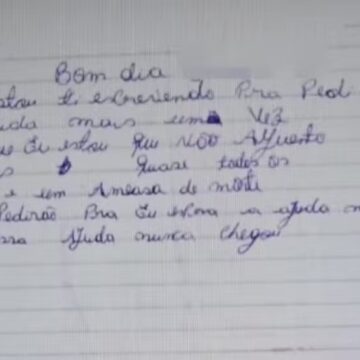 Bom dia
estou ti escrevendo Pra Ped
uda mais uma Vez
ue Eu estou Qui NÃO AGuento
s Quase todos os
e um Ameasa de morte
Pedirão Pra Eu a ajuda m
ssa AJuda nunca chegou